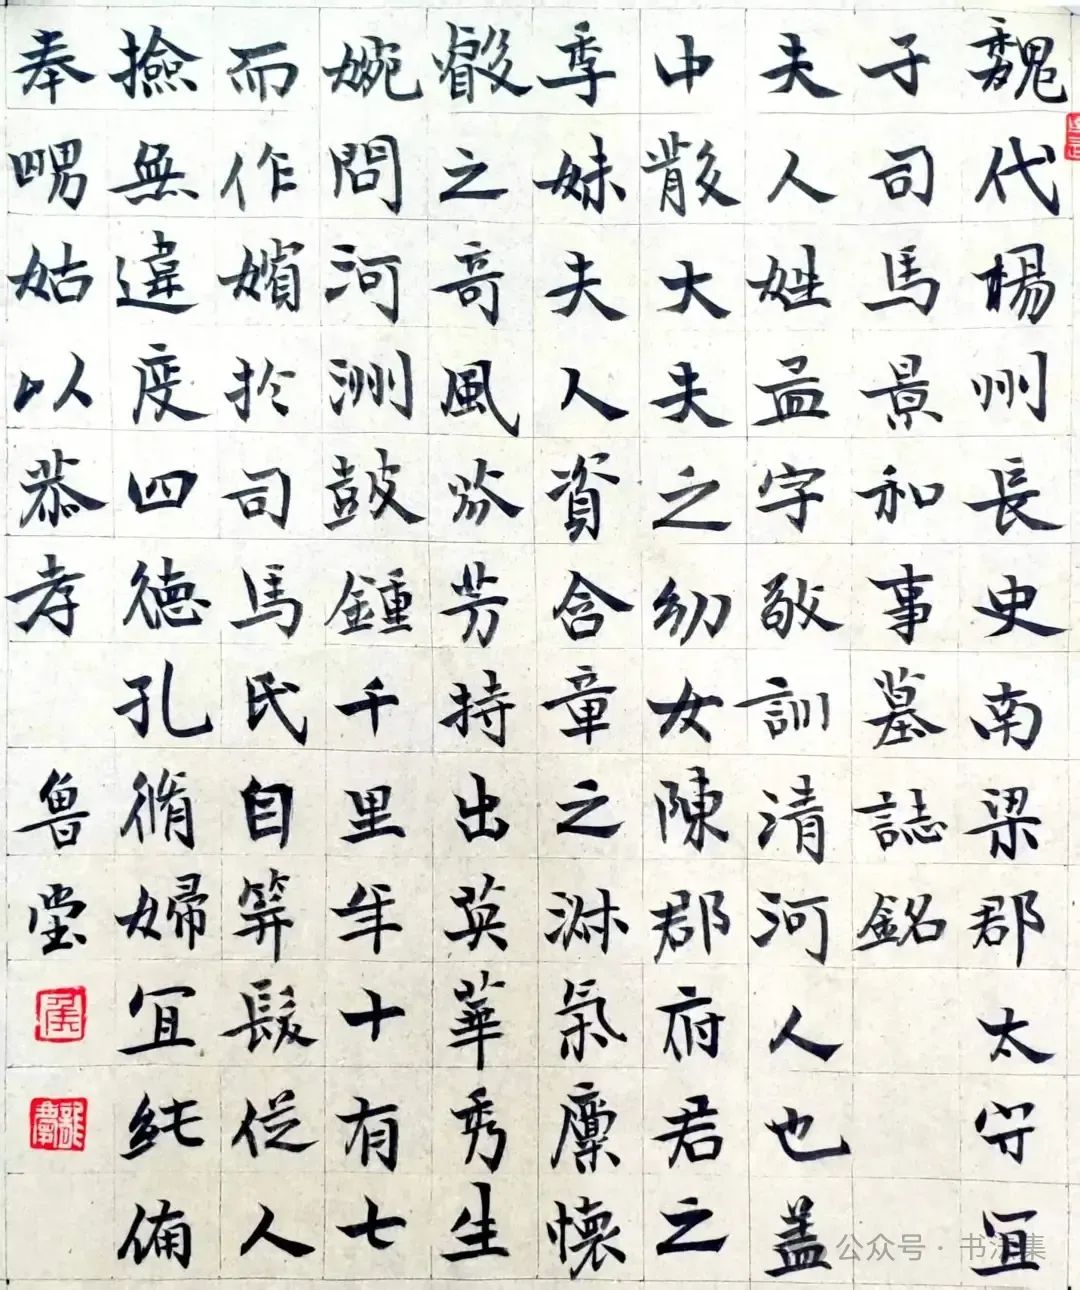 魏代楊州長史南梁郡太守宜
子司馬景和事墓誌銘
夫人姓孟字敬訓清河人也蓋
中散大夫之幼女陳郡府君之
季妹夫人資含章之淋氣稟懷
叡之奇風芬芳持出英華秀生
婉問河洲鼓鍾千里年十有七
而作嬪於司馬氏自笄髮從人
撿無違度四德孔脩婦宜純備
奉嘒姑以恭孝
魯堂
公众号·书法集